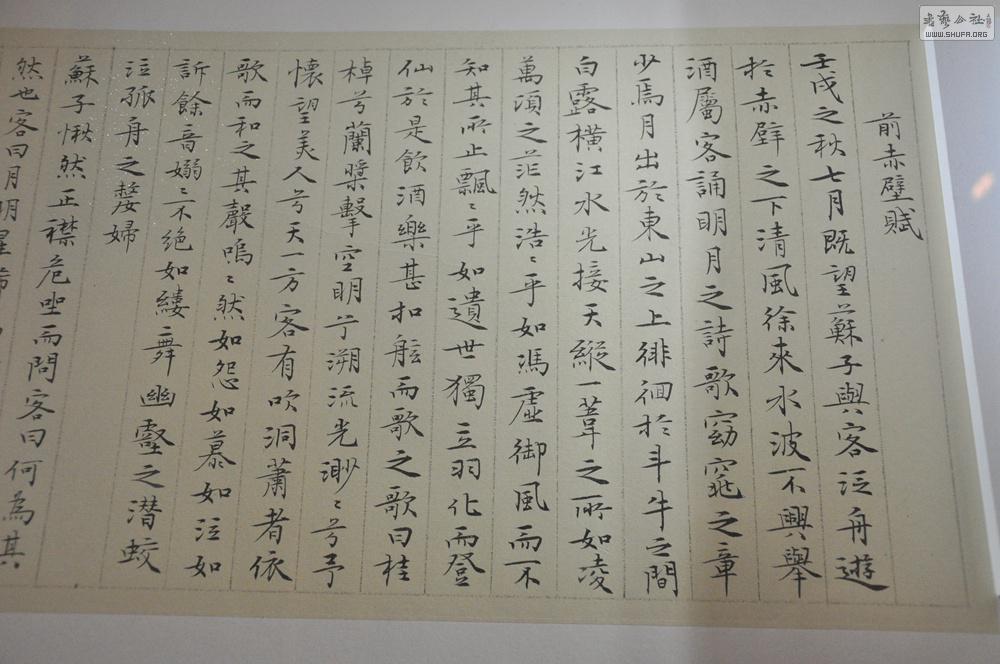 前赤壁賦
壬戌之秋七月既望蘇子與客泛舟遊
於赤壁之下清風徐來水波不興舉
酒屬客誦明月之詩歌窈窕之章
少焉月出於東山之上徘徊於斗牛之間
白露橫江水光接天縱一葦之所如凌
萬頃之茫然浩〻乎如馮虛御風而不
知其所止飄〻乎如遺世獨立羽化而登
仙於是飲酒樂甚扣舷而歌之歌曰桂
棹兮蘭槳擊空明兮溯流光渺〻兮予
懷望美人兮天一方客有吹洞蕭者依
歌而和之其聲嗚〻然如怨如慕如泣如
訴餘音嫋〻不絕如縷舞幽壑之潛蛟
泣孤舟之嫠婦
蘇子愀然正襟危坐而問客曰何為其
然也客曰月明星稀
WWW.SHUFA.ORG